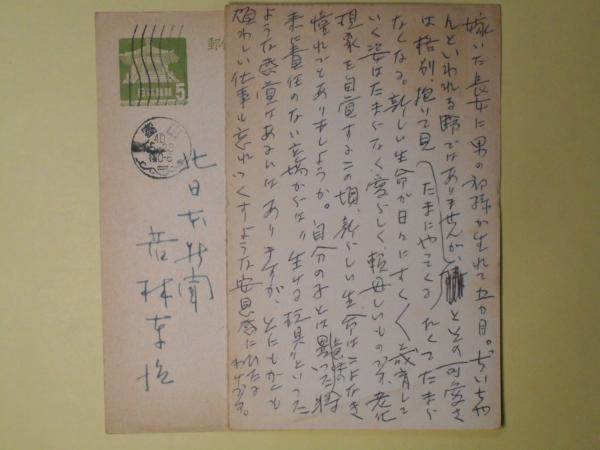 嫁いだ長女に男の初孫が生れて五カ月。ぢいちや
んといわれる齢ではありませんが、とその可愛さ
は格別、抱いて見たくてたまら
たまにやってくる
なくなる。新しい生命が日々にすくすく成育して
いく姿はたまらなく愛らしく、頼母しいもので、老化
現象を自覚するこの頃、新らしい生命はこよなき
憧れでありましょうか。自分の子とは異った
意味の
将
来に責任のない立場からは、生ける玩具といった
ような感覚はあるいはありますが、とにもかくにも
煩わしい仕事も忘れてくすような安息感にひたる
わけです。
郵便
日本郵便
5
北日本新聞